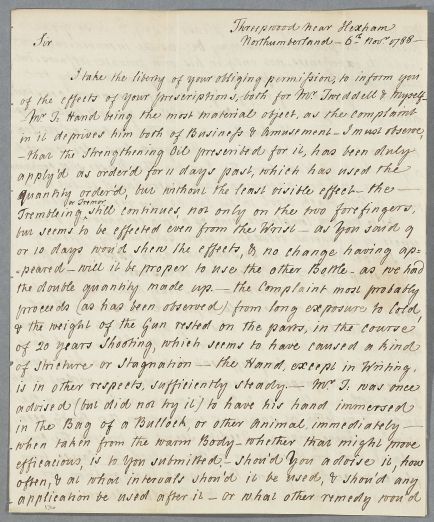 Threepwood near Hexham
Sir Northumberland - 6th Novr 1788 -
I take the liberty of your obliging permission, to inform you
of the effects of your prescriptions, both for Mr Tweddell & Myself -
Mr T. Hand being the most material object, as the complaint
in it deprives him both of Business & Amusement - I must observe,
- that the Strengthening Oil prescribed for it, has been duly
apply'd as order'd for 11 days past, which has used the
Quantity order'd, but without the least visible effect - the -
or Tremor
Trembleing, still continues, not only on the two forefingers,
but seems to be effected even from the Wrist - as You said 9
or 10 days wou'd shew the effects, & no change having ap-
-peared - will it be proper to use the other Bottle - as we had
the double quantity made up - the Complaint most probably
proceeds (as has been observed) from long exposure to Cold,
& the weight of the Gun rested on the parts, in the course
of 20 years Shooting, which seems to have caused a kind
of Stricture or Stagnation - the Hand, except in Writing,
is in other respects, sufficiently steady - Mr T. was once
advised (but did not try it) to have his hand immersed
in the Bag of a Bullock, or other Animal, immediately -
when taken from the warm Body - whether that might prove
efficatious, is to You submitted - shou'd You advise it, how
often, & at what intervals shou'd it be used, & shou'd any
application be used after it - or what other remedy wou'd